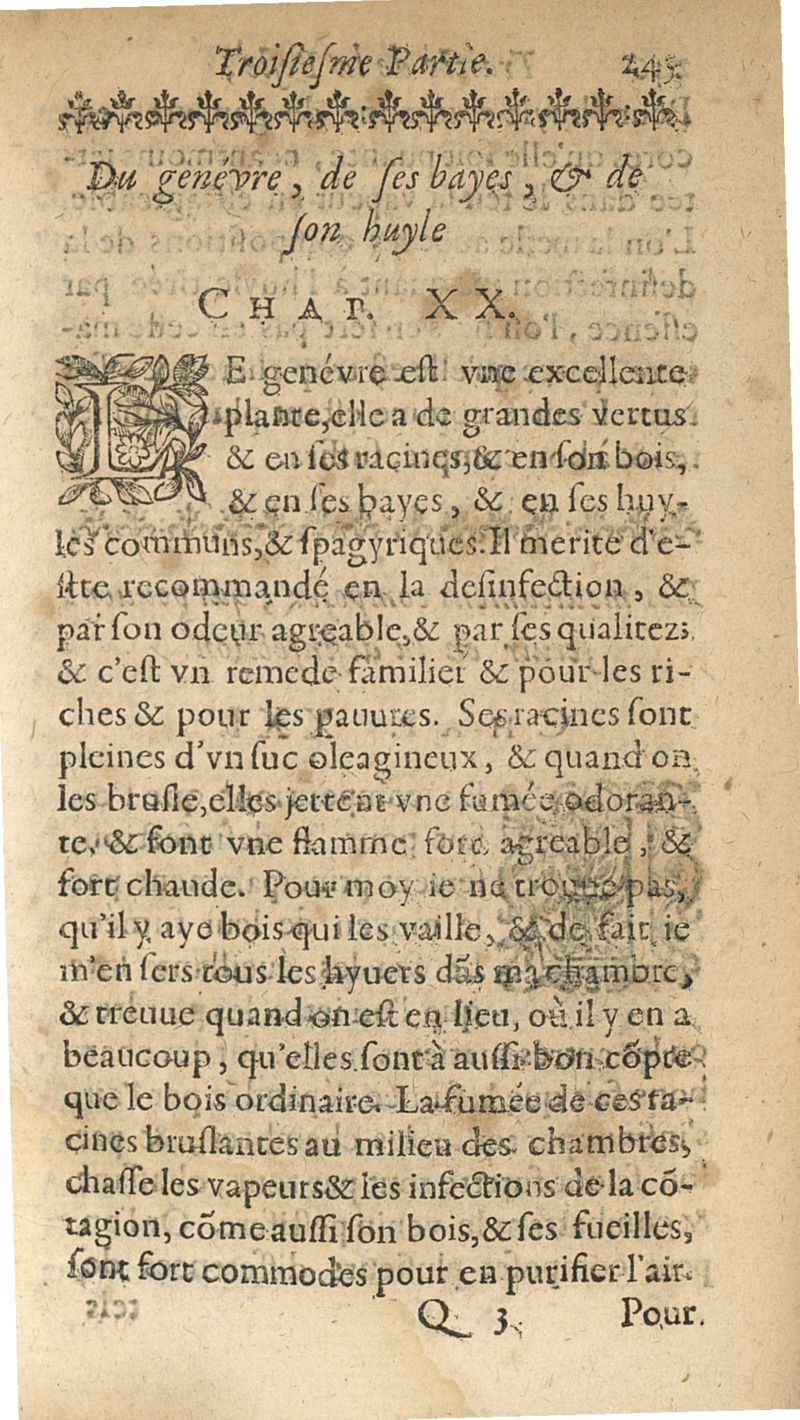 Troisieſme Partie. 245
Du genévre, de ſes bayes, & de
ſon huyle
CHAP. XX.
LE genévre est vne excellente
plante, elle a de grandes vertus
& en ſes racines, & en ſon bois,
& en ſes bayes, & en ſes huy-
les communs, & ſpagyriques. Il merite d'e-
ſtre recommandé en la deſinfection, &
par ſon odeur agreable, & par ſes qualitez;
& c'eſt vn remede familier & pour les ri-
ches & pour les pauures. Ses racines ſont
pleines d'vn ſuc oleagineux, & quand on
les bruſle, elles jettent vne fumée odoran-
te, & font vne flamme fort agreable, &
fort chaude. Pour moy ie ne trouue pas,
qu'il y aye bois qui les vaille, & de fait ie
m'en ſers tous les hyuers dãs ma chambre,
& treuue quand on eſt en lieu, où il y en a
beaucoup, qu'elles ſont à auſſi bon cõpte
que le bois ordinaire. La fumée de ces ra-
cines bruſlantes au milieu des chambres,
chaſſe les vapeurs & les infections de la cõ-
tagion, cõme auſſi ſon bois, & ſes fueilles,
ſont fort commodes pour en purifier l'air.
Q 3 Pour